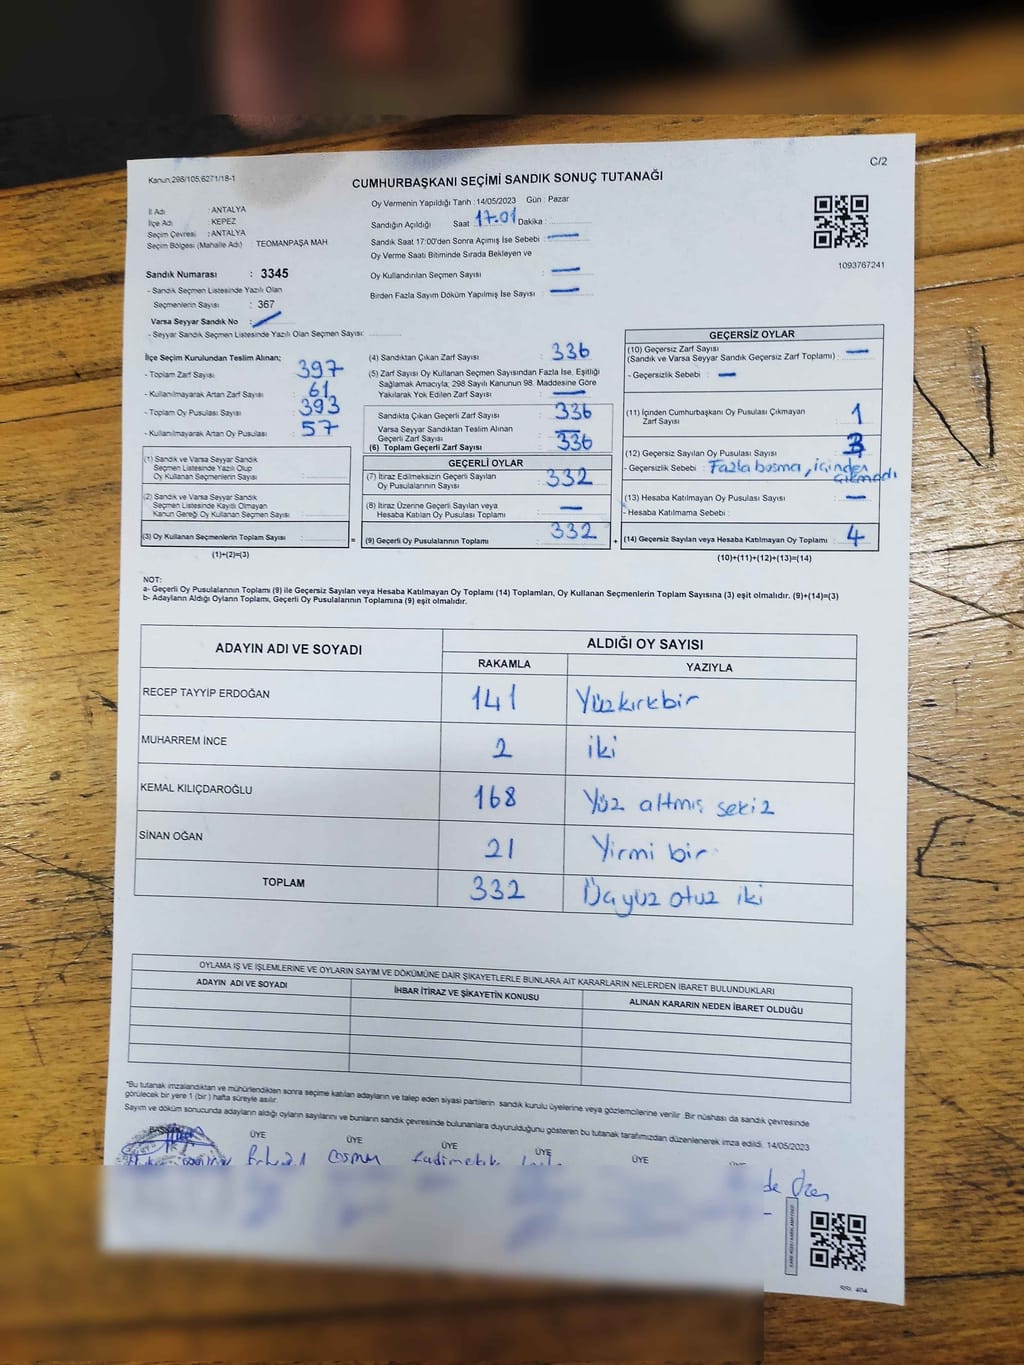 Kanun;298/105,6271/18-1
C/2
CUMHURBAŞKANI SEÇİMİ SANDIK SONUÇ TUTANAĞI
İl Adı : ANTALYA
İlçe Adı : KEPEZ
Seçim Çevresi : ANTALYA
Seçim Bölgesi (Mahalle Adı) TEOMANPAŞA MAH
Oy Vermenin Yapıldığı Tarih : 14/05/2023 Gün : Pazar
Sandığın Açıldığı Saat 17.01 Dakika :
Sandık Saat 17:00'den Sonra Açımış İse Sebebi : —
Oy Verme Saati Bitiminde Sırada Bekleyen ve
Oy Kullandırılan Seçmen Sayısı : —
Birden Fazla Sayım Döküm Yapılmış İse Sayısı : —
1093767241
Sandık Numarası : 3345
- Sandık Seçmen Listesinde Yazılı Olan
Seçmenlerin Sayısı : 367
Varsa Seyyar Sandık No :
- Seyyar Sandık Seçmen Listesinde Yazılı Olan Seçmen Sayısı:
İlçe Seçim Kurulundan Teslim Alınan;
- Toplam Zarf Sayısı : 397
- Kullanılmayarak Artan Zarf Sayısı : 61
- Toplam Oy Pusulası Sayısı : 393
- Kullanılmayarak Artan Oy Pusulası : 57
(1) Sandık ve Varsa Seyyar Sandık
Seçmen Listesinde Yazılı Olup
Oy Kullanan Seçmenlerin Sayısı :
(2) Sandık ve Varsa Seyyar Sandık
Seçmen Listesinde Kayıtlı Olmayan
Kanun Gereği Oy Kullanan Seçmen Sayısı :
(3) Oy Kullanan Seçmenlerin Toplam Sayısı : =
(1)+(2)=(3)
(4) Sandıktan Çıkan Zarf Sayısı : 336
(5) Zarf Sayısı Oy Kullanan Seçmen Sayısından Fazla İse, Eşitliği
Sağlamak Amacıyla; 298 Sayılı Kanunun 98. Maddesine Göre
Yakılarak Yok Edilen Zarf Sayısı : —
Sandıkta Çıkan Geçerli Zarf Sayısı : 336
Varsa Seyyar Sandıktan Teslim Alınan
Geçerli Zarf Sayısı : —
(6) Toplam Geçerli Zarf Sayısı : 336
GEÇERLİ OYLAR
(7) İtiraz Edilmeksizin Geçerli Sayılan
Oy Pusulalarının Sayısı : 332
(8) İtiraz Üzerine Geçerli Sayılan veya
Hesaba Katılan Oy Pusulası Toplamı : —
(9) Geçerli Oy Pusulalarının Toplamı : 332 +
GEÇERSİZ OYLAR
(10) Geçersiz Zarf Sayısı
(Sandık ve Varsa Seyyar Sandık Geçersiz Zarf Toplamı) : —
- Geçersizlik Sebebi : —
(11) İçinden Cumhurbaşkanı Oy Pusulası Çıkmayan
Zarf Sayısı : 1
(12) Geçersiz Sayılan Oy Pusulası Sayısı : 3
- Geçersizlik Sebebi : Fazla basma, içinden
çıkmadı
(13) Hesaba Katılmayan Oy Pusulası Sayısı : —
- Hesaba Katılmama Sebebi :
(14) Geçersiz Sayılan veya Hesaba Katılmayan Oy Toplamı : 4
(10)+(11)+(12)+(13)=(14)
NOT:
a- Geçerli Oy Pusulalarının Toplamı (9) ile Geçersiz Sayılan veya Hesaba Katılmayan Oy Toplamı (14) Toplamları, Oy Kullanan Seçmenlerin Toplam Sayısına (3) eşit olmalıdır. (9)+(14)=(3)
b- Adayların Aldığı Oyların Toplamı, Geçerli Oy Pusulalarının Toplamına (9) eşit olmalıdır.
ADAYIN ADI VE SOYADI ALDIĞI OY SAYISI
RAKAMLA YAZIYLA
RECEP TAYYİP ERDOĞAN 141 Yüzkırkbir
MUHARREM İNCE 2 iki
KEMAL KILIÇDAROĞLU 168 Yüz altmış sekiz
SİNAN OĞAN 21 Yirmi bir
TOPLAM 332 Üçyüz otuz iki
OYLAMA İŞ VE İŞLEMLERİNE VE OYLARIN SAYIM VE DÖKÜMÜNE DAİR ŞİKAYETLERLE BUNLARA AİT KARARLARIN NELERDEN İBARET BULUNDUKLARI
ADAYIN ADI VE SOYADI İHBAR İTİRAZ VE ŞİKAYETİN KONUSU ALINAN KARARIN NEDEN İBARET OLDUĞU
*Bu tutanak imzalandıktan ve mühürlendikten sonra seçime katılan adayların ve talep eden siyasi partilerin sandık kurulu üyelerine veya gözlemcilerine verilir. Bir nüshası da sandık çevresinde
görülecek bir yere 1 (bir ) hafta süreyle asılır.
Sayım ve döküm sonucunda adayların aldığı oyların sayılarını ve bunların sandık çevresinde bulunanlara duyurulduğunu gösteren bu tutanak tarafımızdan düzenlenerek imza edildi. 14/05/2023
BAŞKAN ÜYE ÜYE ÜYE ÜYE ÜYE